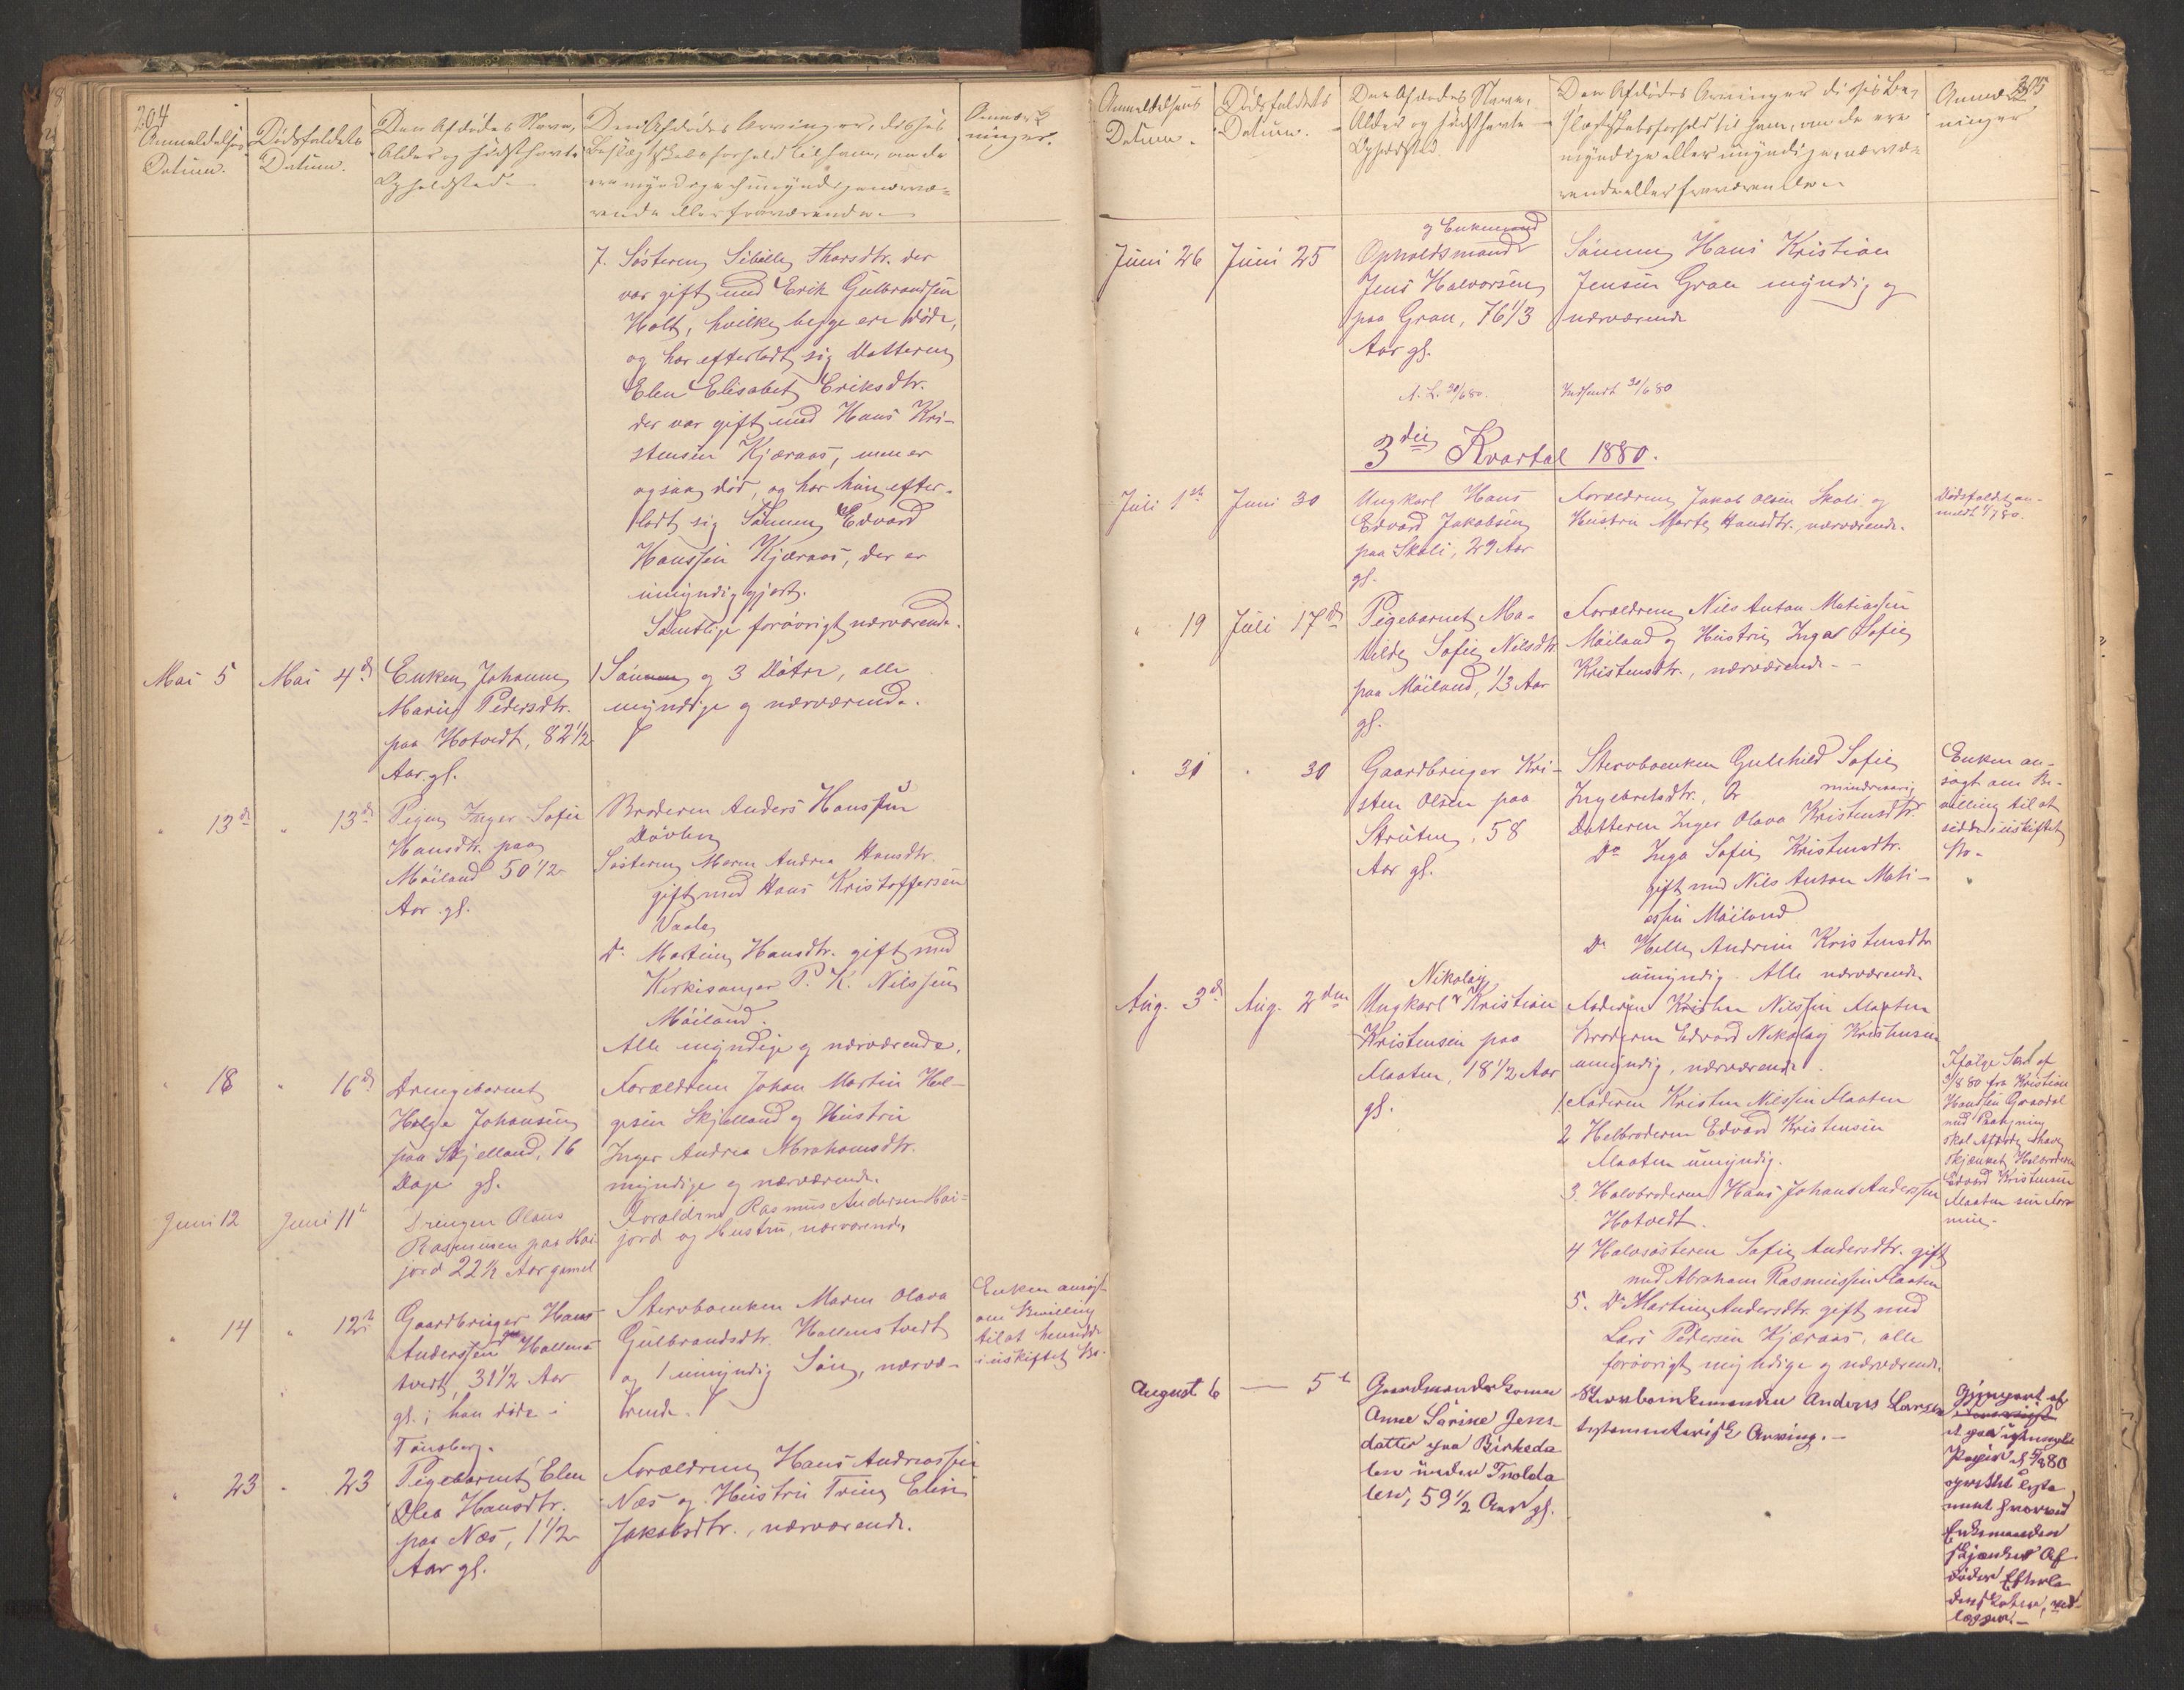 204
Anmeldelses
Datum.
Dødsfaldets
Datum.
Den Afdødes Navn,
Alder og sidst havte
Opholdsted.
Den Afdødes Arvinger, disses
Beslægtskabsforhold til ham, om de
ere myndige eller umyndige, nærvæ-
rende eller fraværende.
Anmærk-
ninger.
7. Søsteren Sibille Thorsdtr. der
var gift med Erik Gulbrandsen
Holt, hvilke begge ere døde,
og har efterladt sig Datteren
Elen Elisabet Eriksdtr.
der var gift med Hans Kri-
stensen Kjæraas, men er
ogsaa død, og har hun efter-
ladt sig Sønnen Edvard
Hanssen Kjæraas, der er
umyndiggjort.
Samtlige forøvrigt nærværende.
Mai 5
Mai 4de
Enken Johanne
Marie Pedersdtr.
paa Hotvedt, 82 1/2
Aar gl.
1 Søn og 3 Døtre, alle
myndige og nærværende.
" 13de
" 13de
Pigen Inger Sofie
Hansdtr. paa
Møiland 50 1/2
Aar gl.
Broderen Anders Hanssen
Døvlen
Søsteren Maren Andrea Hansdtr.
gift med Hans Kristoffersen
Vaale
Do Martine Hansdtr. gift med
Kirkesanger P. K. Nilssen
Møiland.
Alle myndige og nærværende.
" 18
" 16de
Drengebarnet
Helge Johansen
paa Skjelland, 16
Dage gl.
Forældrene Johan Martin Hel-
gesen Skjelland og Hustru
Inger Andrea Abrahamsdtr.
myndige og nærværende.
Juni 12
Juni 11te
Drengen Olaus
Rasmussen paa Hai-
jord 22 1/2 Aar gamel
Forældrene Rasmus Andersen Hai-
jord og Hustru, nærværende
" 14
" 12te
Gaardbruger Hans
Anderssen paa Hallen-
tvedt, 31 1/2 Aar
gl.; han døde i
Tønsberg.
Stervboenken Maren Olava
Gulbrandsdtr. Hallenstvedt
og 1 umyndig Søn, nærvæ-
rende.
Enken ansøgt
om Bevilling
til at hensidde
i uskiftet Bo.
" 23
" 23
Pigebarnet Elen
Olea Hansdtr.
paa Næs, 1 1/2
Aar gl.
Forældrene Hans Andreassen
Næs og Hustru Trine Elise
Jakobsdtr., nærværende.
305
Anmeldelsens
Datum.
Dødsfaldets
Datum.
Den Afdødes Navn,
Alder og sidst havte
Opholdsted
Den Afdødes Arvinger disses Be-
slægtskabsforhold til ham, om de ere
myndige eller umyndige, nærvæ-
rende eller fraværende.
Anmærk-
ninger
Juni 26
Juni 25
og Enkemand
Opholdsmand
Jens Halvorsen
paa Gran, 76 1/3
Aar gl.
Sønnen Hans Kristian
Jensen Gran myndig og
nærværende
A. L. 30/6 80.
Indsendt 30/6 80
3die Kvartal 1880.
Juli 1ste
Juni 30
Ungkarl Hans
Edvard Jakobsen
paa Skoli, 29 Aar
gl.
Forældrene Jakob Olsen Skoli og
Hustru Marte Hansdtr., nærværende.
Dødsfaldet an-
meldt 1/7 80.
" 19
Juli 17de
Pigebarnet Ma-
tilde Sofie Nilsdtr.
paa Møiland, 1/3 Aar
gl.
Forældrene Nils Anton Matiassen
Møiland og Hustru Inga Sofie
Kristensdtr., nærværende.
" 31
" 30
Gaardbruger Kri-
sten Olsen paa
Struten, 58
Aar gl.
Stervboenken Gulhild Sofie
Ingebretsdtr., &
mindreaarig
Datteren Inger Olava Kristensdtr.
Do Inga Sofie Kristensdtr.
gift med Nils Anton Mati-
assen Møiland
Do Helle Andrine Kristensdtr.
umyndig. Alle nærværende
Enken an-
søgt om Be-
villing til at
sidde i uskiftet
Bo.
Aug. 3de
Aug. 2den
Nikolay
Ungkarl Kristian
Kristensen paa
Flaaten, 18 1/2 Aar
gl.
Faderen Kristen Nilssen Flaaten
Broderen Edvard Nikolay Kristensen
umyndig, nærværende.
1 Faderen Kristen Nilssen Flaaten
2 Helbroderen Edvard Kristensen
Flaaten umyndig.
3. Halvbroderen Hans Johans Anderssen
Hotvedt.
4 Halvsøsteren Sofie Andersdtr. gift
med Abraham Rasmussen Flaaten
5. Do Martine Andersdtr. gift med
Lars Pedersen Kjæraas, alle
forøvrigt myndige og nærværende.
Ifølge af
3/8 80 fra Kristian
Hanssen
med Paategning
skal Afdøde have
skjænket Helbroderen
Edvard Kristensen
Flaaten sin For-
mue.
August 6
— 5te
Gaardmandskonen
Anne Sørine Jens-
datter paa Birkeda
len under Trolda
len, 59 1/2 Aar gl.
Stervboenkemanden Anders Larsen
testamentarisk Arving.
Gjenpart af
et paa ustemplet
Papir d. 5/8 80
oprettet Testa
ment hvorved
Enkemanden
skjænkes Af-
dødes Efterla
denskaber, ved-
lægges.